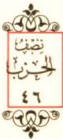 نِصْفُ
الْحِزْبِ
٤٦